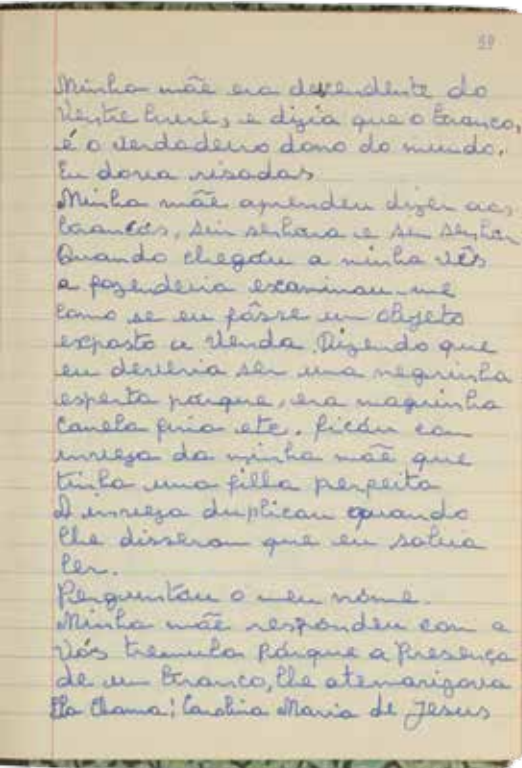 59
Minha mãe era descendente do
Ventre livre, e dizia que o branco,
é o verdadeiro dono do mundo.
Eu dava risadas
Minha mãe aprendeu dizer aos
brancos, sim senhora e sim senhor
Quando chegou a minha vês
a fazendeira examinou-me
como se eu fôsse um objeto
exposto a venda. Dizendo que
eu deveria ser uma negrinha
esperta porque, era magrinha
canela fina etc. ficou com
inveja da minha mãe que
tinha uma filha perfeita
A inveja duplicou quando
lhe disseram que eu sabia
ler.
Perguntou o meu nôme.
Minha mãe respondeu com a
vós tremula pórque a presença
de um branco, lhe atemorizava
Ela chama: Carolina Maria de Jesus